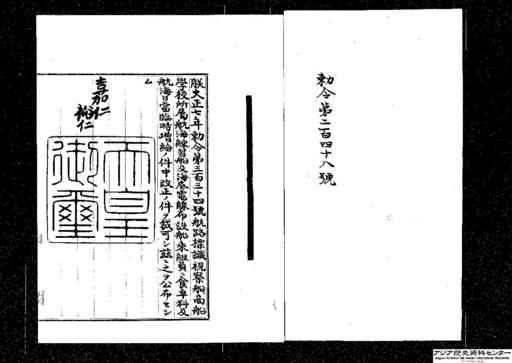 勅令第二百四十八號
朕大正七年勅令第三百三十四號航路標識視察船商船
學校所屬航海練習船及海底電線布設船乘組員ノ食卓料及
航海日當臨時増給ノ件中改正ノ件ヲ裁可シ茲ニ之ヲ公布セシ
ム
嘉仁
裕仁
天皇
御璽
アジア歴史資料センター
Japan Center for Asian Historical Records